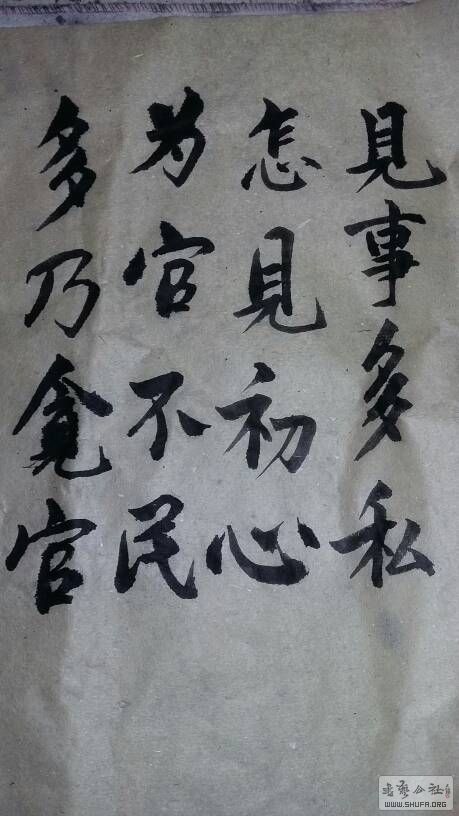 見事多私
怎見初心
为官不民
多乃貪官
WWW.SHUFA.ORG